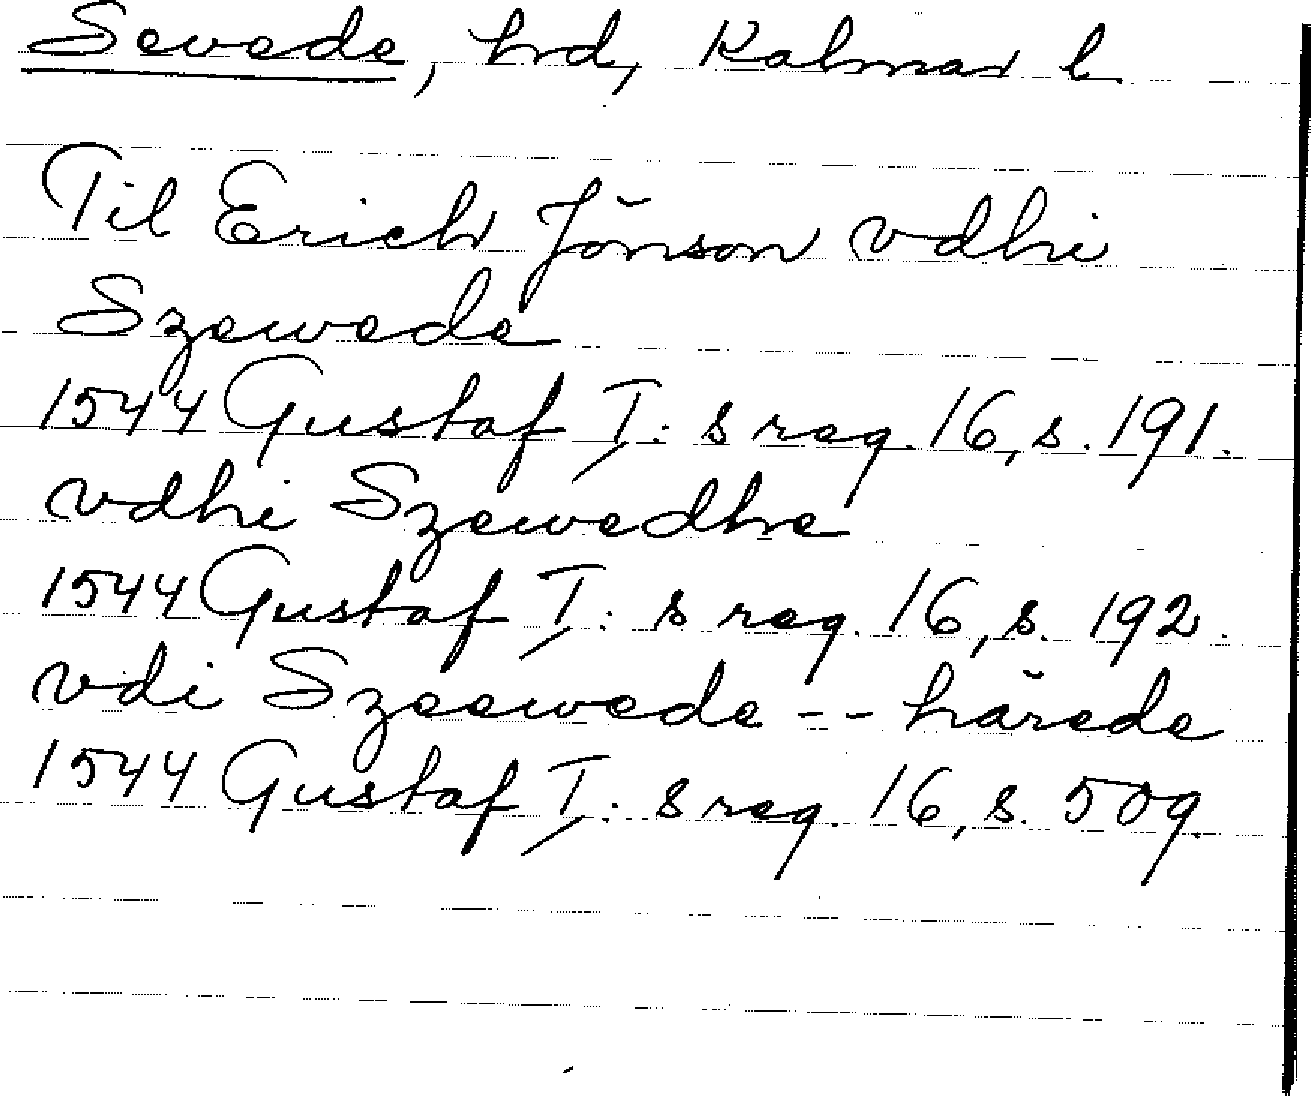 Sevede, hrd, Kalmar l.
Til Erich Jönson vdhi
Szewede
1544 Gustaf I:s reg. 16, s. 191.
vdhi Szewedhe
1544 Gustaf I:s reg. 16, s. 192.
vdi Szeewede -- härede
1544 Gustaf I:s reg. 16, s. 509.